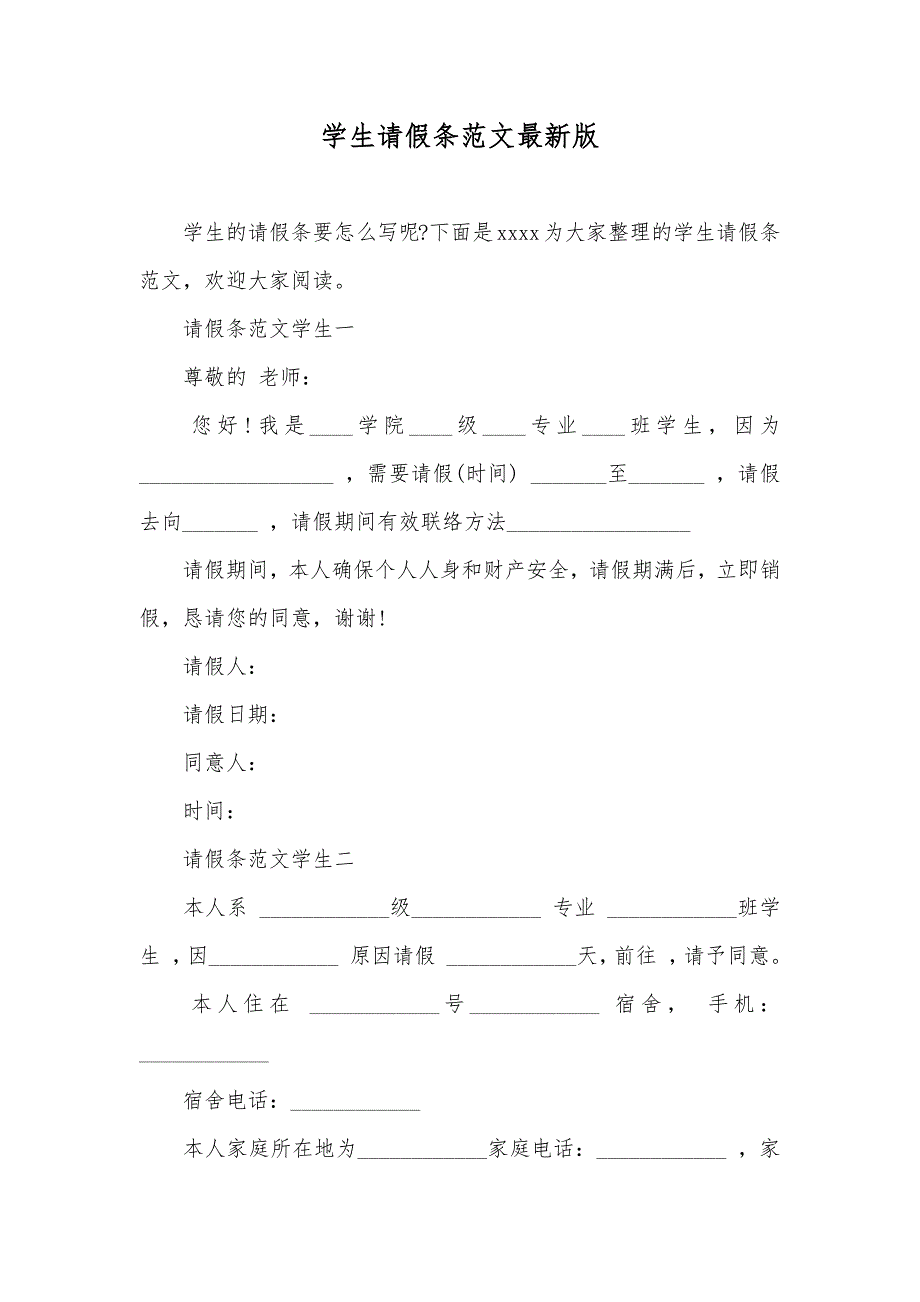 学生请假条范文最新版
学生的请假条要怎么写呢?下面是xxxx为大家整理的学生请假条
范文，欢迎大家阅读。
请假条范文学生一
尊敬的 老师：
您好!我是____学院____级____专业____班学生，因为
__________________ ，需要请假(时间) _______至_______ ，请假
去向_______ ，请假期间有效联络方法_________________
请假期间，本人确保个人人身和财产安全，请假期满后，立即销
假，恳请您的同意，谢谢!
请假人：
请假日期：
同意人：
时间：
请假条范文学生二
本人系 ____________级____________ 专业 ____________班学
生 ，因____________ 原因请假 ____________天，前往 ，请予同意。
本人住在 ____________号____________ 宿舍， 手机：
____________
宿舍电话：____________
本人家庭所在地为____________家庭电话：____________ ，家